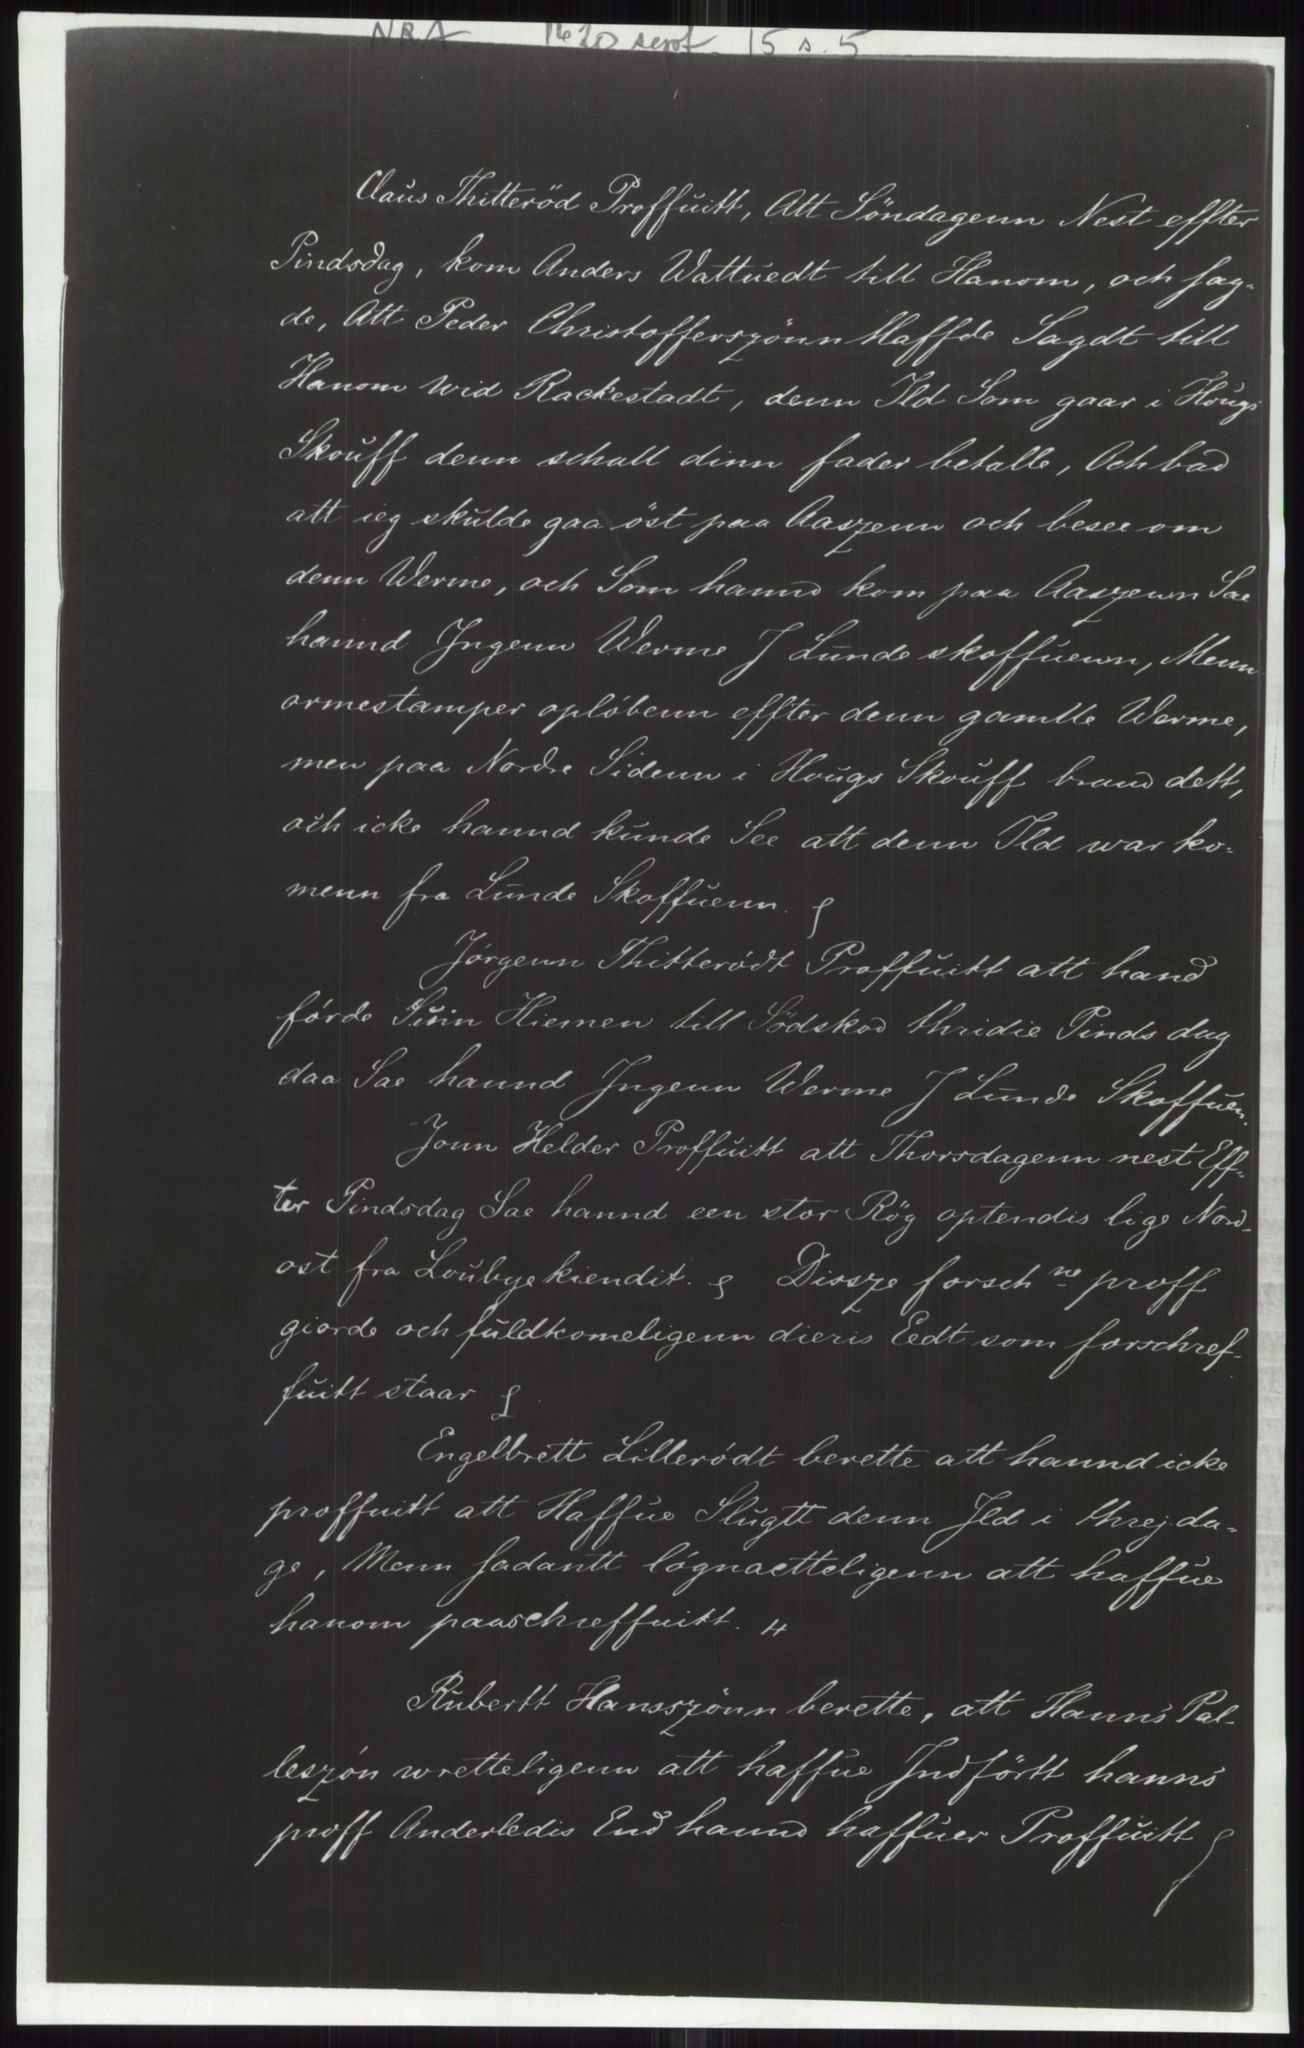 NRA 1620 sept 15 s. 5
Claus Thitteröd Proffuitt, Att Söndagenn Nest effter
Pindsdag, kom Anders Wattuedt till Hanom, och sag-
de, Att Peder Christofferszönn Haffde Sagdt till
Hanom wid Rackestadt, denn Ild Som gaar i Hougs
Skouff denn schall dinn fader betalle, Och bad
att ieg skulde gaa öst paa Aaszenn och besee om
denn Werme, och Som hannd kom paa Aaszenn Sae
hannd Ingenn Werme J Lunde skoffuenn, Menn
ormestamper opløbenn effter denn gamlle Werme,
men paa Nordre Sidenn i Hougs Skouff brand dett,
och icke hannd kunde See att denn Ild war ko-
menn fra Lunde Skoffuenn.
Jørgenn Thitterødt Proffuitt att hand
førde Suin Hiemen till Södskod thridie Pinds dag
daa Sae hannd Jngenn Werme J Lunde Skoffuen.
Jonn Helder Proffuitt att Thorsdagenn nest Eff-
ter Pindsdag Sae hannd een stor Røg optendis lige Nord-
ost fra Loubyekiendit. Dissze forschne proff
giorde och fuldkomeligenn dieris Eedt som forschref-
fuitt staar
Engelbrett Lillerødt berette att hannd icke
proffuitt att Haffue Slugtt denn Jld i threj da-
ge, Menn sadantt løgnaetteligenn att haffue
hanom paaschreffuitt.
Rubertt Hansszönn berette, att Hanns Pal-
leszøn wretteligenn att haffue Jndförtt hanns
proff Anderledis End hannd haffuer Proffuitt